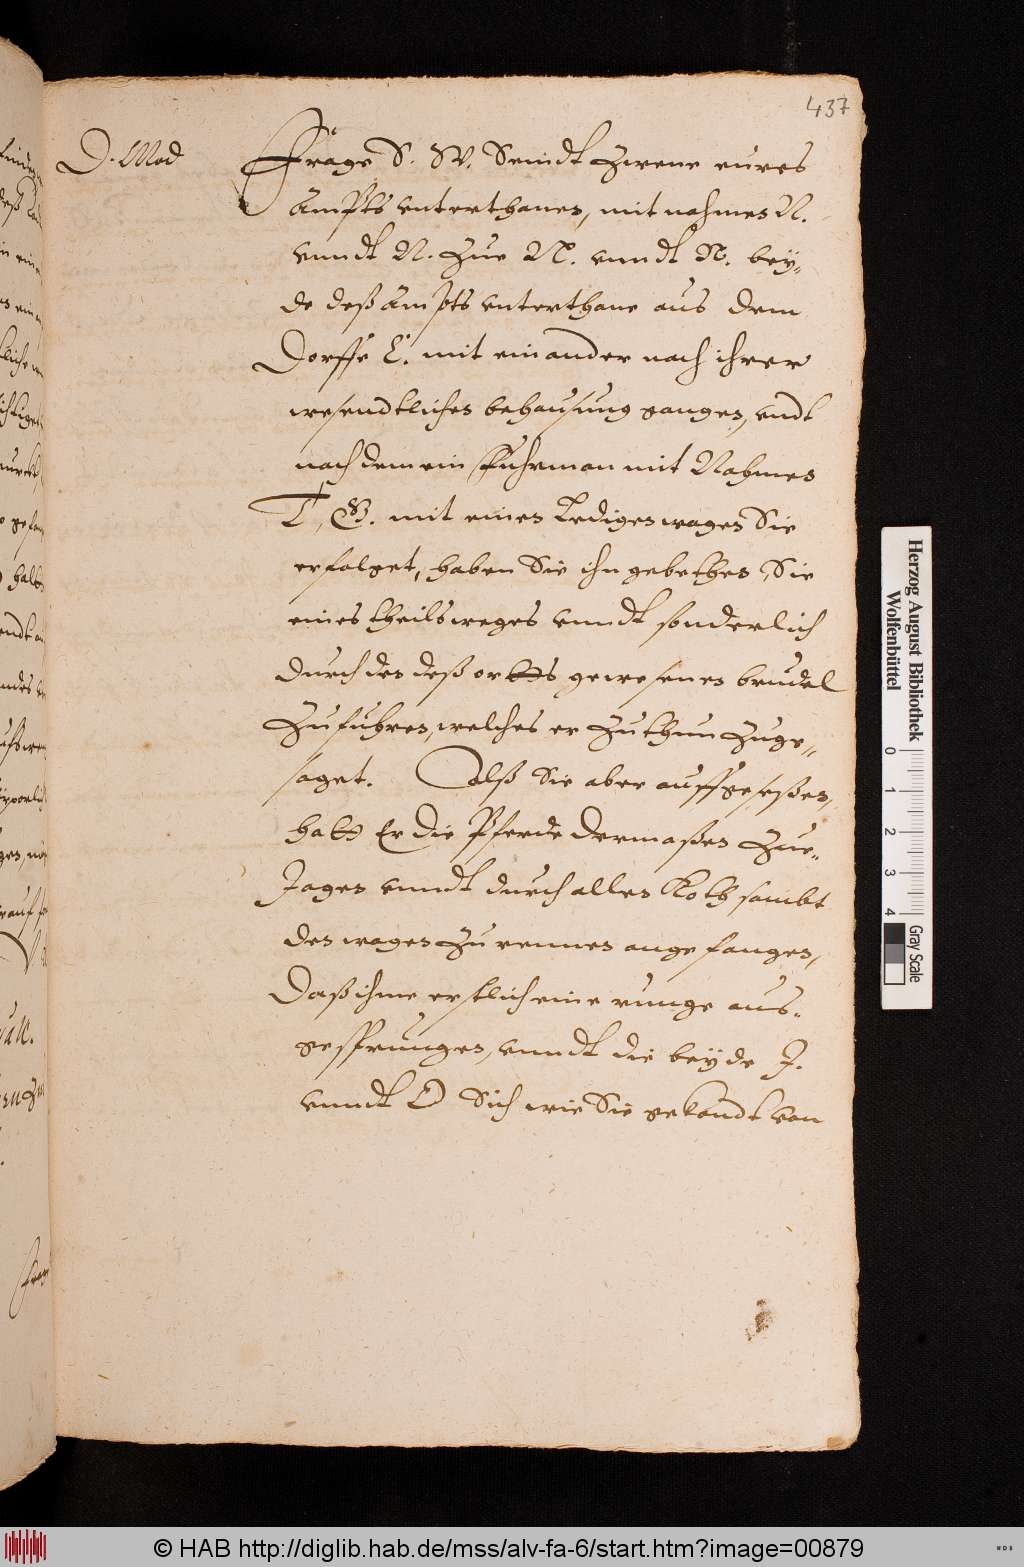 437
D. Mod
Frage S. W. Seindt zwene eures
Ampts unterthanen, mit nahmen N.
unndt N. zue N. unndt N. bey-
de deß Ampts unterthane aus dem
Dorffe E. mit einander nach ihrer
wesendtlichen behausung gangen, undt
nach dem ein Fuhrman mit Nahmen
T. B. mit einen Ledigen wagen Sie
erfolget, haben Sie ihn gebethen Sie
eines theils weges unndt sonderlich
durch den deß ortts gewesenen brudel
Zufuhren, welches er Zuthun Zuge-
saget. Alß Sie aber auffgeseßen,
hatt Er die Pferde dermaßen Zue-
Jagen unndt durch allen Koth sambt
den wagen Zu rennen angefangen,
Daß ihme erstlich eine runge aus-
gesprungen, unndt die beyde J.
unndt O Sich wie Sie gekondt von
Herzog August Bibliothek
Wolfenbüttel
0 1 2 3 4
Gray Scale
© HAB http://diglib.hab.de/mss/alv-fa-6/start.htm?image=00879